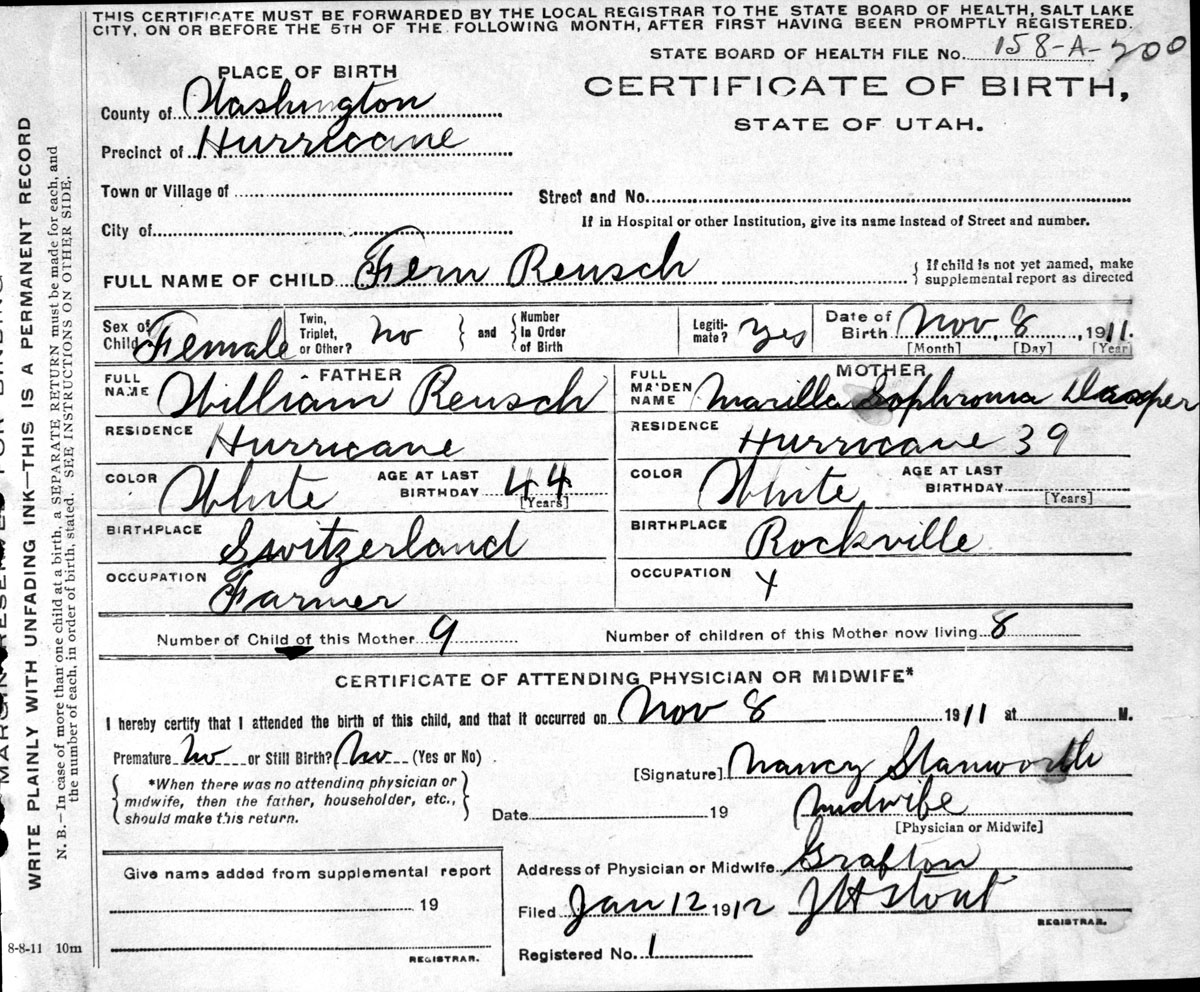 THIS CERTIFICATE MUST BE FORWARDED BY THE LOCAL REGISTRAR TO THE STATE BOARD OF HEALTH, SALT LAKE
CITY, ON OR BEFORE THE 5TH OF THE FOLLOWING MONTH, AFTER FIRST HAVING BEEN PROMPTLY REGISTERED.
STATE BOARD OF HEALTH FILE No. 158-A-200
PLACE OF BIRTH
CERTIFICATE OF BIRTH,
STATE OF UTAH.
County of Washington
Precinct of Hurricane
Town or Village of
Street and No.
City of
If in Hospital or other Institution, give its name instead of Street and number.
FULL NAME OF CHILD Fern Reusch { If child is not yet named, make
supplemental report as directed
Sex of Child Female Twin, Triplet, or Other? no } and { Number In Order of Birth Legiti- mate? Yes Date of Birth Nov 8, 1911.
[Month] [Day] [Year]
FATHER MOTHER
FULL NAME William Reusch FULL MAIDEN NAME Marilla Sophronia
RESIDENCE Hurricane RESIDENCE Hurricane 39
COLOR White AGE AT LAST BIRTHDAY 44 [Years] COLOR White AGE AT LAST BIRTHDAY [Years]
BIRTHPLACE Switzerland BIRTHPLACE Rockville
OCCUPATION Farmer OCCUPATION X
Number of Child of this Mother 9 Number of children of this Mother now living 8
CERTIFICATE OF ATTENDING PHYSICIAN OR MIDWIFE*
I hereby certify that I attended the birth of this child, and that it occurred on Nov 8 1911 at M.
Premature no or Still Birth? no (Yes or No)
{ *When there was no attending physician or
midwife, then the father, householder, etc.,
should make this return. }
[Signature] Nancy Stanworth
Date 19 Midwife
[Physician or Midwife]
Address of Physician or Midwife Grafton
Filed Jan 12 1912 J H Stout
REGISTRAR.
Registered No. 1
Give name added from supplemental report
19
REGISTRAR.
8-8-11 10m
WRITE PLAINLY WITH UNFADING INK—THIS IS A PERMANENT RECORD
N. B.—In case of more than one child at a birth, a SEPARATE RETURN must be made for each, and
the number of each, in order of birth, stated. SEE INSTRUCTIONS ON OTHER SIDE.